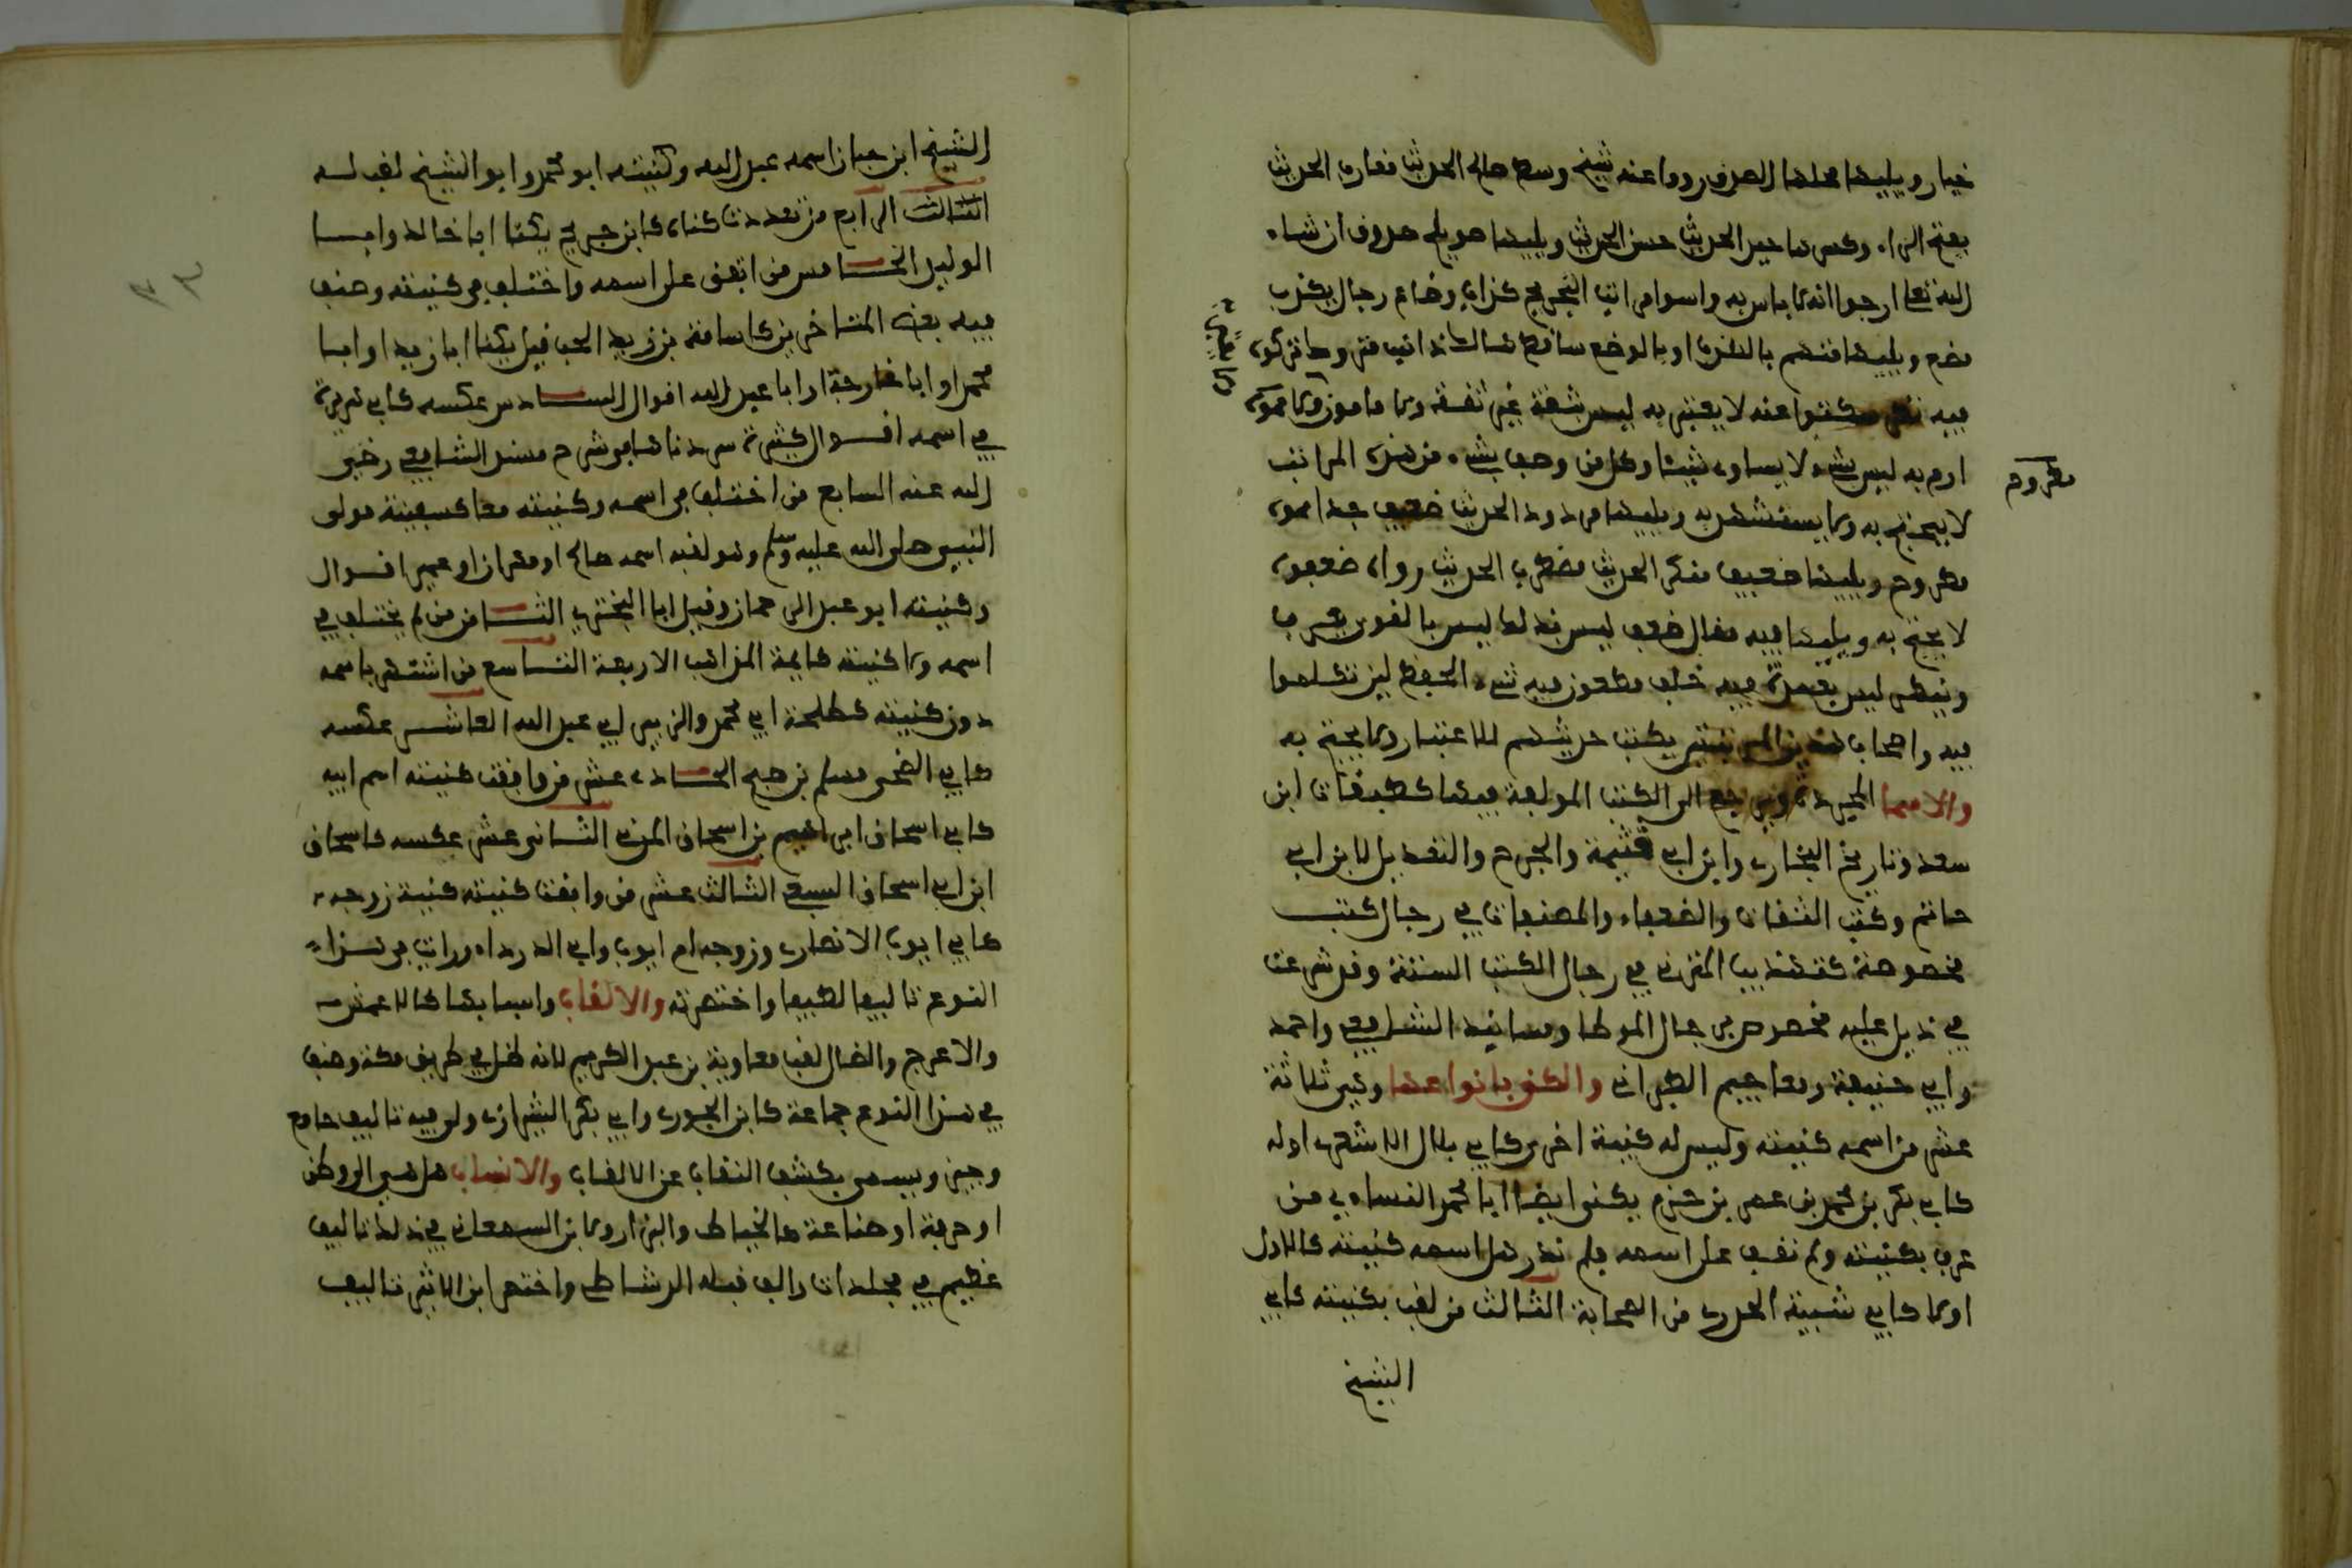 خيار ويليها محلها الصدق رووا عنه شيخ وسط صالح الحديث مقارب الحديث
بفتح الراء وكسرها جيد الحديث حسن الحديث ويليها صويلح صدوق ان شاء
الله تعالى ارجو انه لا باس به واسوا مراتب التجريح كذاب وضاع دجال يكذب
يضع ويليها متهم بالكذب او بالوضع ساقط هالك ذاهب متروك تركوه
فيه نظر سكتوا عنه لا يعتبر به ليس بثقة غير ثقة ولا مامون
مطروح
ارم به ليس بشيء لا يساوي شيئا وكل من وصف بشيء من هذه المراتب
لا يحتج به ولا يستشهد به ويليها مردود الحديث ضعيف جدا
مطروح ويليها ضعيف منكر الحديث مضطرب الحديث رواه ضعفوه
لا يحتج به ويليها فيه مقال ضعف ليس بذلك ليس بالقوي يعرف
وينكر ليس بعمدة فيه خلف مطعون فيه سيء الحفظ لين تكلموا
فيه واصحاب هذين المرتبتين يكتب حديثهم للاعتبار ولا يحتج به
والاسما المجردة ويرجع الى الكتب المولفة فيها كطبقات ابن
سعد وتاريخ البخاري وابن ابي خثيمة والجرح والتعديل لابن ابي
حاتم وكتب الثقات والضعفاء والمصنفات في رجال كتب
مخصوصة كتهذيب المزي في رجال الكتب الستة وقد شرعت
في ذيل عليه مخصوص برجال الموطا ومسانيد الشافعي واحمد
وابي حنيفة ومعاجيم الطبراني والكنى بانواعها وهي ثلاثة
عشر من اسمه كنيته وليس له كنية اخرى كابي بلال الاشعري اوله
كابي بكر بن محمد بن عمر بن حزم يكنى ايضا ابا محمد الثاني من
عرف بكنيته ولم نقف على اسمه فلم ندر هل اسمه كنيته كالاول
اولا كابي شيبة الخدري من الصحابة الثالث من لقب بكنيته كابي
الشيخ
الشيخ ابن حيان اسمه عبد الله وكنيته ابو محمد وابو الشيخ لقب له
الثالث الرابع من تعددت كناه كابن جريج يكنا ابا خالد وابا
الوليد الخامس من اتفق على اسمه واختلف في كنيته وصنف
فيه بعض المتاخرين كاسامة بن زيد الحب قيل يكنا ابا زيد او ابا
محمد او ابا خارجة او ابا عبد الله اقوال السادس عكسه كابي هريرة
في اسمه اقوال كثيرة سردناها في شرح مسند الشافعي رضي
الله عنه السابع من اختلف في اسمه وكنيته معا كسفينة مولى
النبي صلى الله عليه وسلم وهو لقبه اسمه صالح او مهران او عمير اقوال
وكنيته ابو عبد الرحمان وقيل ابا البختري الثامن من لم يختلف في
اسمه ولا كنيته كايمة المذاهب الاربعة التاسع من اشتهر باسمه
دون كنيته كطلحة ابي محمد والزبير ابي عبد الله العاشر عكسه
كابي الضحى مسلم بن صبيح الحادي عشر من وافقت كنيته اسم ابيه
كابي اسحاق ابراهيم بن اسحاق المدني الثاني عشر عكسه كاسحاق
ابن ابي اسحاق السبيعي الثالث عشر من وافقت كنيته كنية زوجه
كابي ايوب الانصاري وزوجه ام ايوب وابي الدرداء ورايت في هذا
النوع تاليفا لطيفا واختصرته والالقاب واسبابها كالاعمش
والاعرج والضال لقب معاوية بن عبد الكريم لانه ضل في طريق مكة وصنف
في هذا النوع جماعة كابن الجوزي وابي بكر الشيرازي ولي فيه تاليف جامع
وجيز ويسمى بكشف النقاب عن الالقاب والانساب هل هي الى وطن
او حرفة او صناعة كالخياط والبزار ولابن السمعاني في ذلك تاليف
عظيم في مجلدات والف قبله الرشاطي واختصر ابن الاثير تاليف